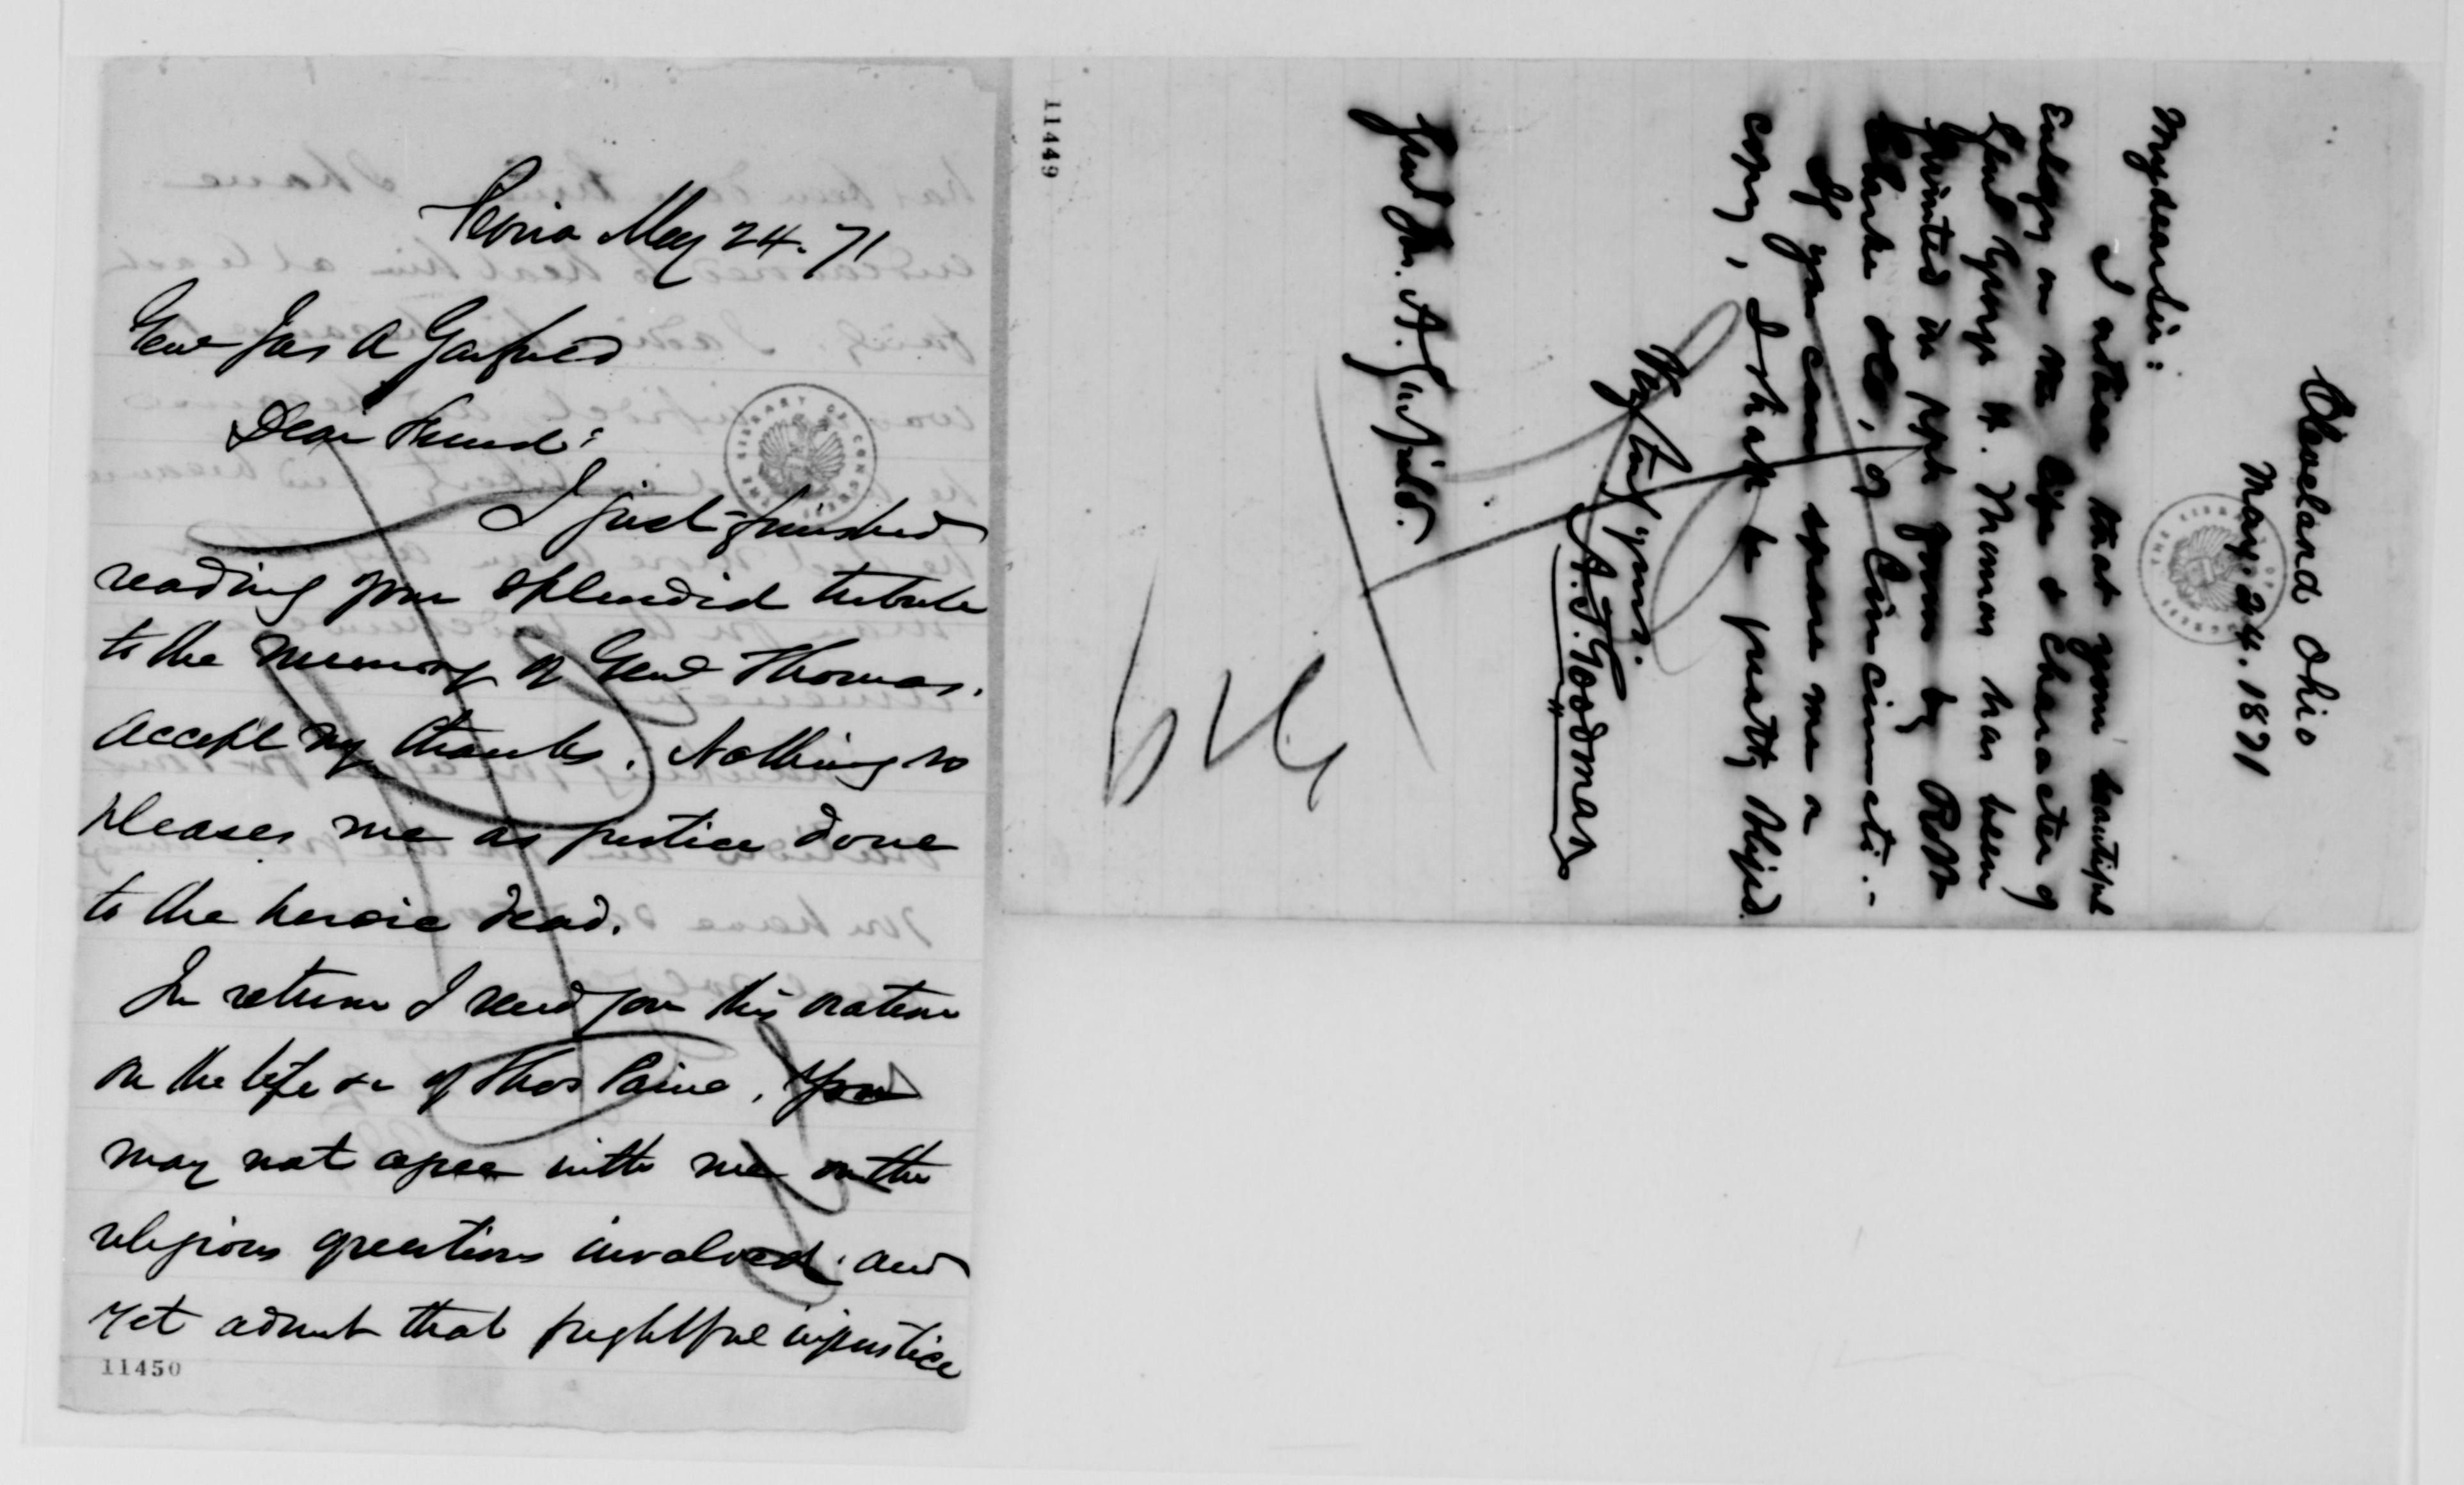 Peoria May 24. 71
Genl Jas A Garfield
Dear Friend:
I just finished
reading your splendid tribute
to the memory of Genl Thomas.
Accept my thanks. Nothing so
pleases me as justice done
to the heroic dead.
In return I send you this oration
on the life &c of Thos Paine. You
may not agree with me on the
religious questions involved: and
yet admit that frightful injustice
11450
11449
Cleveland Ohio
May. 24. 1871
My dear Sir:
I notice that your beautiful
Eulogy on the life & Character of
Genl George H. Thomas has been
printed in pph form by Robt
Clarke &Co, of Cincinnati.-
If you can spare me a
copy, I shall be greatly Obliged.
Very truly yours.
A. T. Goodman
Genl Jas. A. Garfield.
THE LIBRARY OF CONGRESS
THE LIBRARY OF CONGRESS